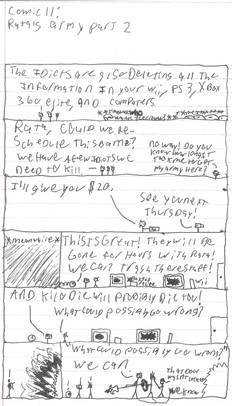 Comic 11:
Rata's army part 2
The Idiots are also Deleting all the
Information In your wii, PS3, Xbox
360 elite, AND computers.
Rata, Could we Re-
Schedule this battle?
we Have A few idiots we
need to kill
No way! Do you
know how long it
took me to get
my army here?
I'll give you $20.
See you next
Thursday!
*meanwhile*
This is Great! They will be
Gone for Hours with Rata!
We can trash there stuff!
AND Killo Dic will Probably Die too!
What could possibly go wrong?
What could possibly go wrong?
We can.